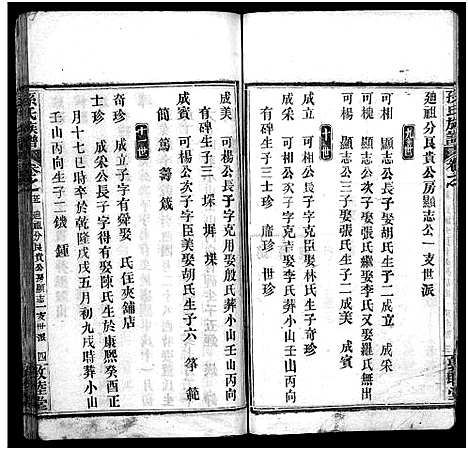 孫氏族譜
廸祖分民貴公房顯志公一支世派
九世
可相 顯志公長子娶胡氏生子二 成立 成采
可楊 顯志公次子娶張氏繼娶李氏又娶羅氏無出
可模 顯志公三子娶張氏生子二 成美 成賓
十世
成立 可相公長子字克臣娶林氏生子奇珍
成采 可相公次子字克正娶李氏葬小山壬山丙向
有碑生子三 士珍 廉珍 世珍
成美 可楊公長子字克用娶殷氏葬小山壬山丙向
有碑生子三 埰 墀 堁
成賓 可楊公次子字臣美娶胡氏生子六 筝 範
簡 篤 籌 箴
十一世
奇珍 成立子字得有舜娶 氏住夾舖店
士珍 成采公長子字得有娶陳氏生於康熙癸酉正
月十七巳時卒於乾隆戊戌五月初九戌時葬小山
壬山丙向生子二 鐖 鍾
孫氏族譜 卷之三 廸祖分民貴公房顯志一支世派 四 敦睦堂